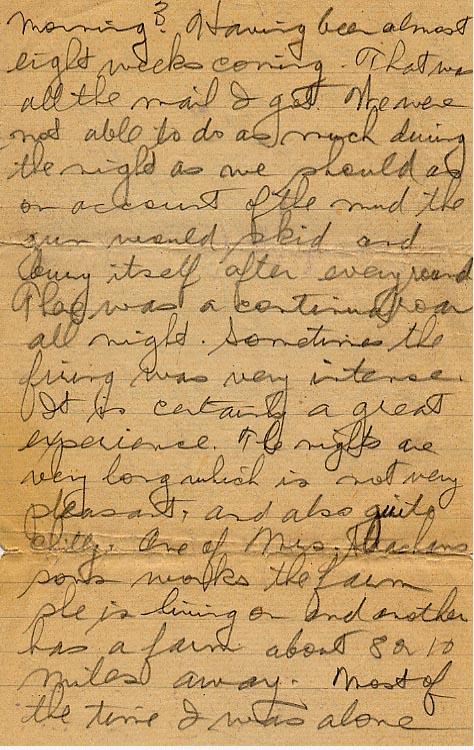 morning? Having been almost
eight weeks coming. That was
all the mail I got. We were
not able to do as much during
the night as we should as
on account of the mud the
gun would skid and
bury itself after every round
There was a continual roar
all night. Sometimes the
firing was very intense.
It is certainly a great
experience. The nights are
very long which is not very
pleasant, and also quite
chilly. One of Mrs.
sons works the farm
she is living on and another
has a farm about 8 or 10
miles away. Most of
the time I was alone